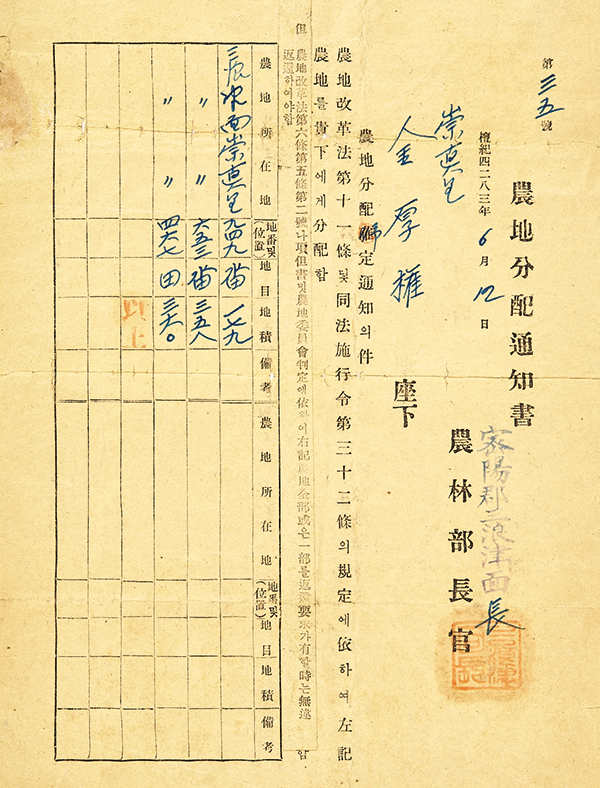 第三五號
農地分配通知書
檀紀四二八三年 6月12日
密陽郡三浪津面長
農林部長官
崇眞里
金厚權 座下
農地分配確定通知의件
農地改革法第十一條및同法施行令第三十二條의規定에依하여左記
農地를貴下에게分配함
但 農地改革法第六條第五條第二號나項但書및農地委員會判定에依하여右記農地全部或은一部를返還要求가有할時는無違
返還하여야함
農地所在地 地番및(位置) 地目 地積 備考 農地所在地 地番및(位置) 地目 地積 備考
面崇眞里 九四九 畓 一七九
〃 〃 六五三 畓 三五八
〃 〃 四六七 田 三六〇
以上